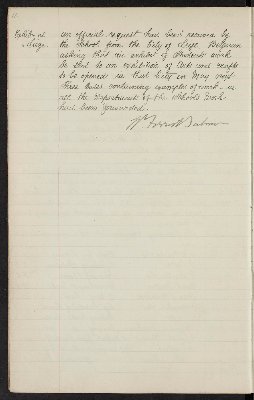 Exhibit at Liege.
An official request had been received by
the School from the City of Liege Belgium
asking that an exhibit of Students work
be sent to an exhibition of Arts and Crafts
to be opened in that City in May next
These cases containing examples of work in
all the departments of the School's work
had been forwarded.
Wm Forrest